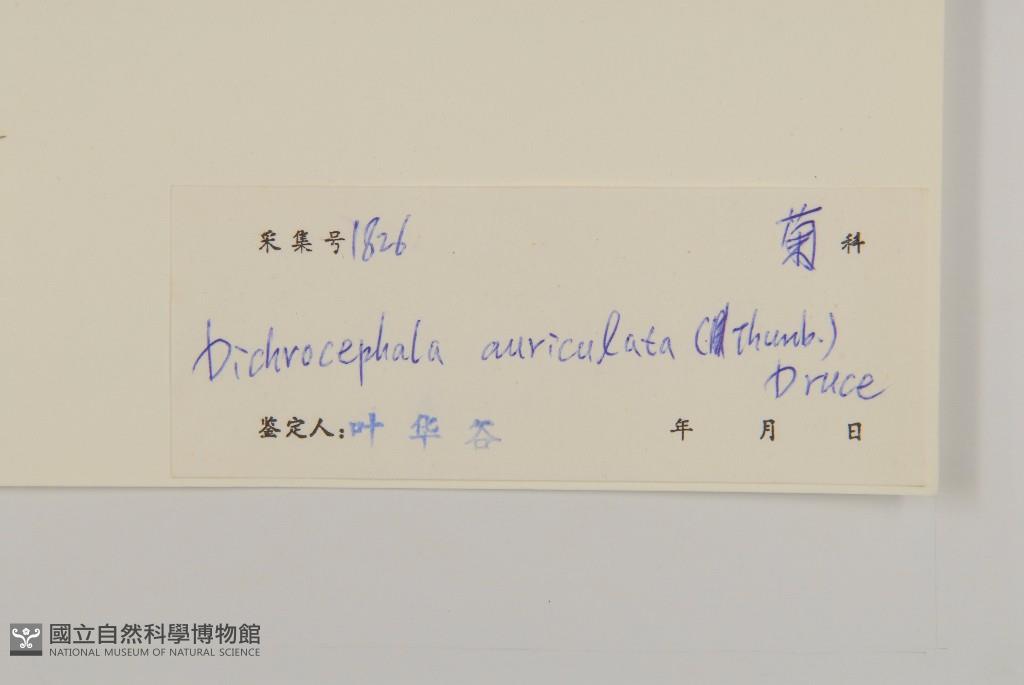 采集号1826 菊科
Dichrocephala auriculata (Thunb.)
Druce
鉴定人:叶华谷 年 月 日
國立自然科學博物館
NATIONAL MUSEUM OF NATURAL SCIENCE